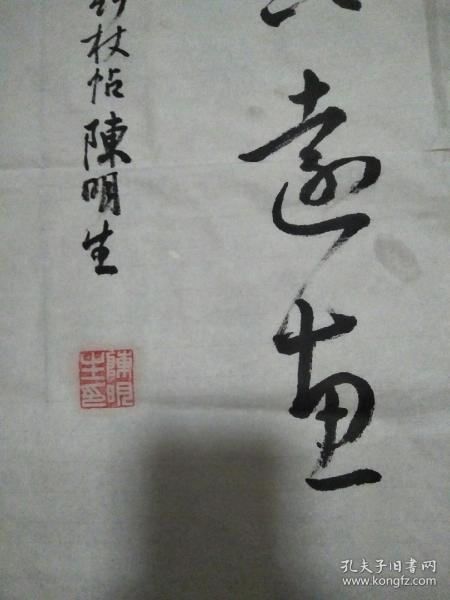 遠惠
杖帖陳明生
陳明
生印
孔夫子旧书网
www.kongfz.com